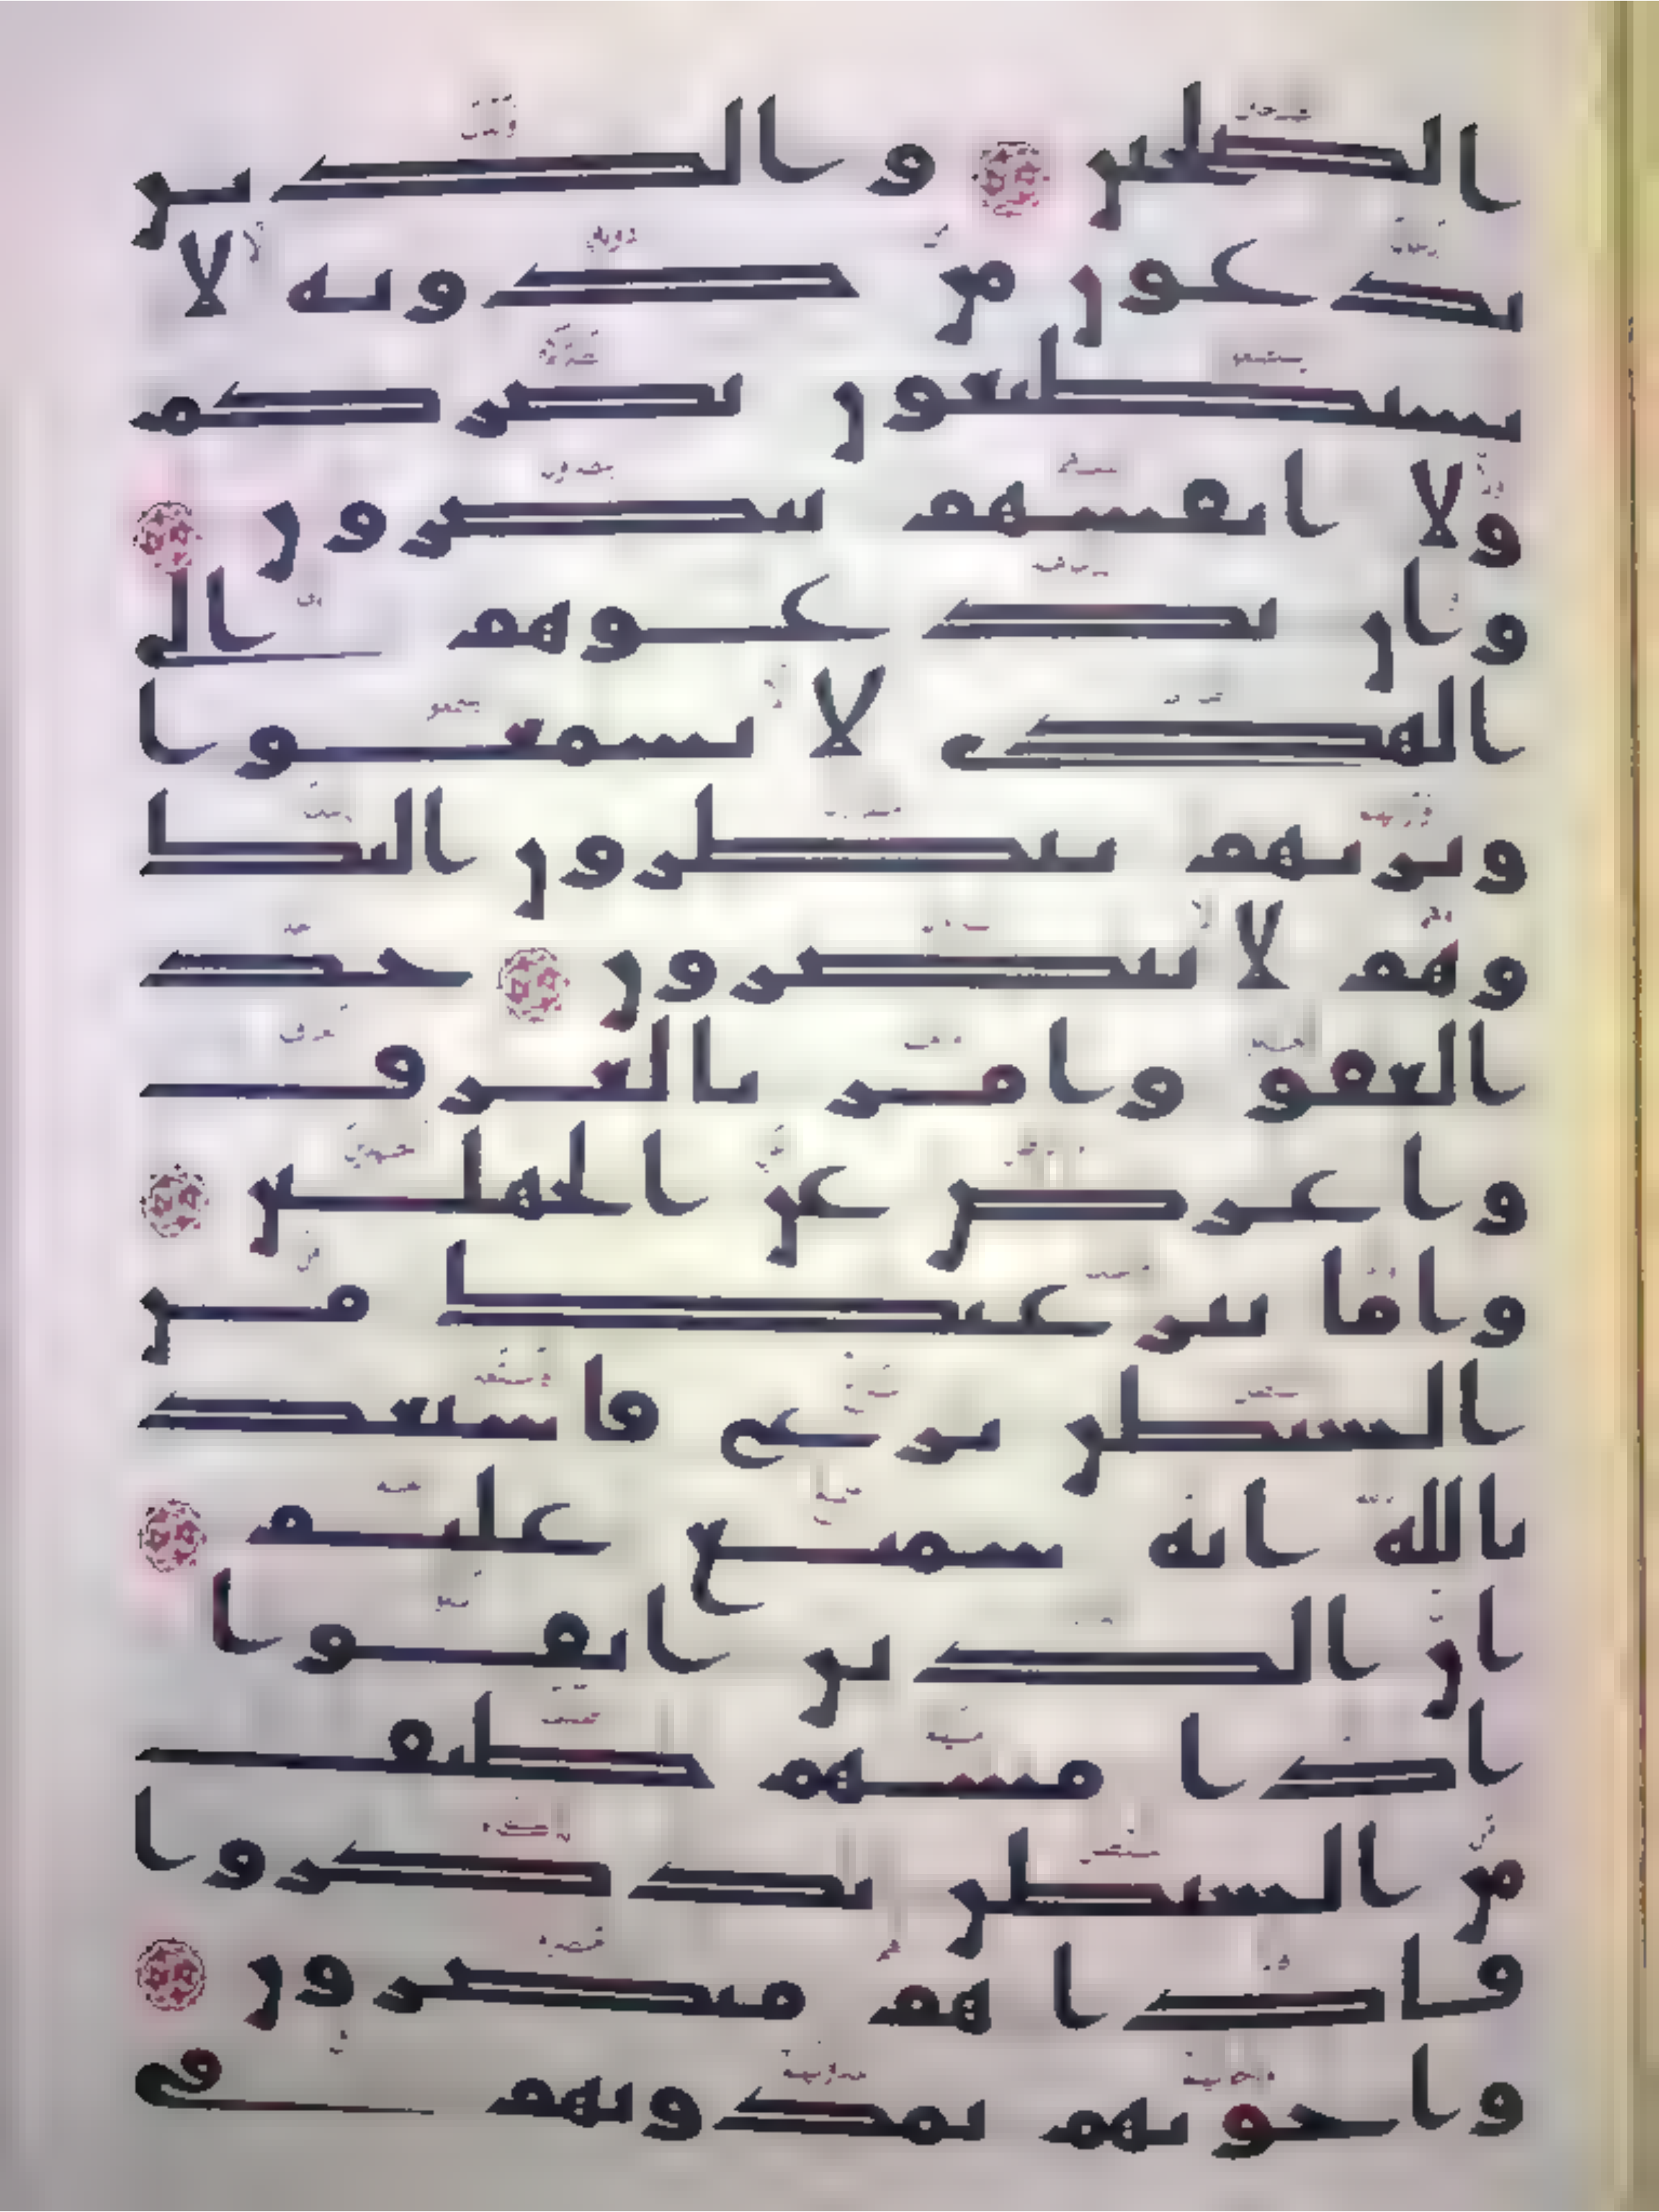 الصلحين والذين
تدعون من دونه لا
يستطيعون نصركم
ولا انفسهم ينصرون
وان تدعوهم الى
الهدى لا يسمعوا
وتريهم ينظرون اليك
وهم لا يبصرون خذ
العفو وامر بالعرف
واعرض عن الجهلين
واما ينزغنك من
الشيطن نزغ فاستعذ
بالله انه سميع عليم
ان الذين اتقوا
اذا مسهم طيف
من الشيطن تذكروا
فاذا هم مبصرون
واخونهم يمدونهم في